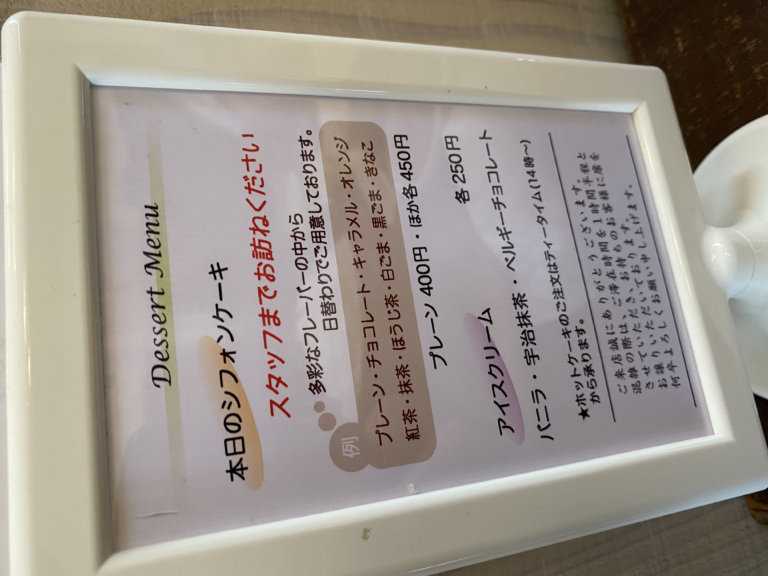 Dessert Menu
本日のシフォンケーキ
スタッフまでお訪ねください
多彩なフレーバーの中から
日替わりでご用意しております。
例
プレーン・チョコレート・キャラメル・オレンジ
紅茶・抹茶・ほうじ茶・白ごま・黒ごま・きなこ
プレーン 400円・ほか各 450円
アイスクリーム 各 250円
バニラ・宇治抹茶・ベルギーチョコレート
★ホットケーキのご注文はティータイム(14時〜)
から承ります。
ご来店誠にありがとうございます。
混雑の際は、ご滞在時間を1時間半程と
させていただき、お待ちのお客様に席を
お譲りいただいております。
何卒よろしくお願い申し上げます。